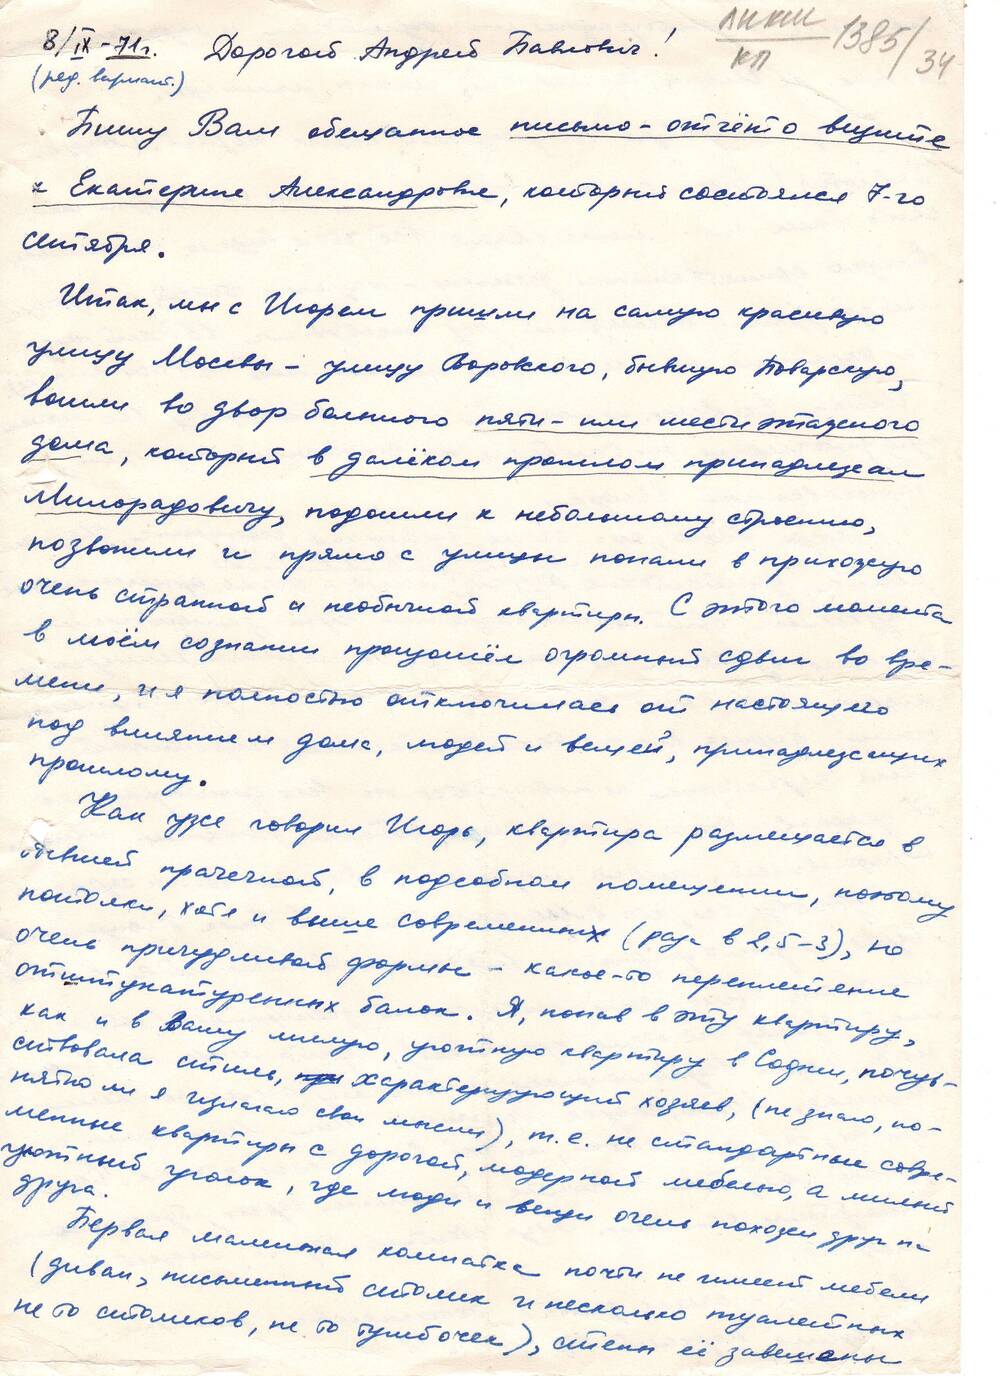 8/IX-71г. Дорогой Андрей Павлович!
КП 1385/34
(ред. вариант.)
Пишу Вам обещанное письмо-отчёт о визите
к Екатерине Александровне, который состоялся 7-го
сентября.
Итак, мы с Игорем пришли на самую красивую
улицу Москвы – улицу Воровского, бывшую Поварскую,
вошли во двор большого пяти- или шестиэтажного
дома, который в далёком прошлом принадлежал
Милорадовичу, подошли к небольшому строению,
позвонили и прямо с улицы попали в прихожую
очень странной и необычной квартиры. С этого момента
в моём сознании произошёл огромный сдвиг во вре-
мени, и я полностью отключилась от настоящего
под влиянием дома, людей и вещей, принадлежащих
прошлому.
Как уже говорил Игорь, квартира размещается в
бывшей прачечной, в подсобном помещении, поэтому
потолки, хотя и выше современных (раза в 2,5-3), но
очень причудливой формы – какое-то переплетение
отштукатуренных балок. Я, попав в эту квартиру,
как и в Вашу милую, уютную квартиру в Содни, почув-
ствовала стиль, характеризующий хозяев, (не знаю, по-
нятно ли я излагаю свои мысли), т.е. не стандартные совре-
менные квартиры с дорогой, модерной мебелью, а милый
уютный уголок, где люди и вещи очень похожи друг на
друга.
Первая маленькая комнатка почти не имеет мебели
(диван, письменный столик и несколько туалетных
не то столиков, не то тумбочек), стены её завешены